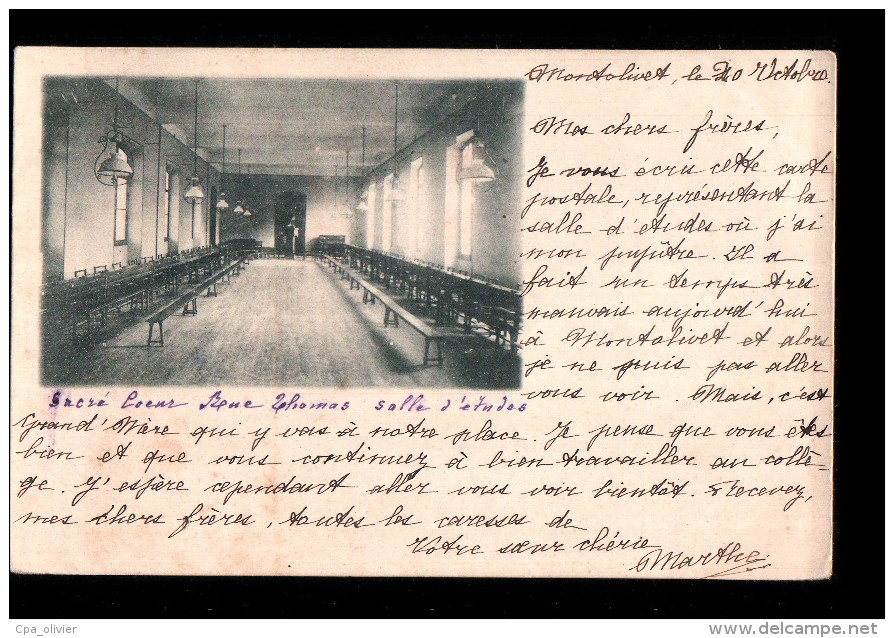 Montolivet, le 20 Octobre.
Mes chers frères,
Je vous écris cette carte
postale, représentant la
salle d'etudes où j'ai
mon pupître. Il a
fait un temps très
mauvais aujourd'hui
à Montolivet et alors
je ne puis pas aller
vous voir. Mais, c'est
Sacré Coeur Rue Thomas salle d'études
Grand'Mère qui y vas à notre place. Je pense que vous êtes
bien et que vous continuez à bien travailler au collè-
ge. J'espère cependant aller vous voir bientôt. Recevez,
mes chers frères, toutes les caresses de
Votre sœur chérie
Marthe
Cpa_olivier
http://www.delcampe.net